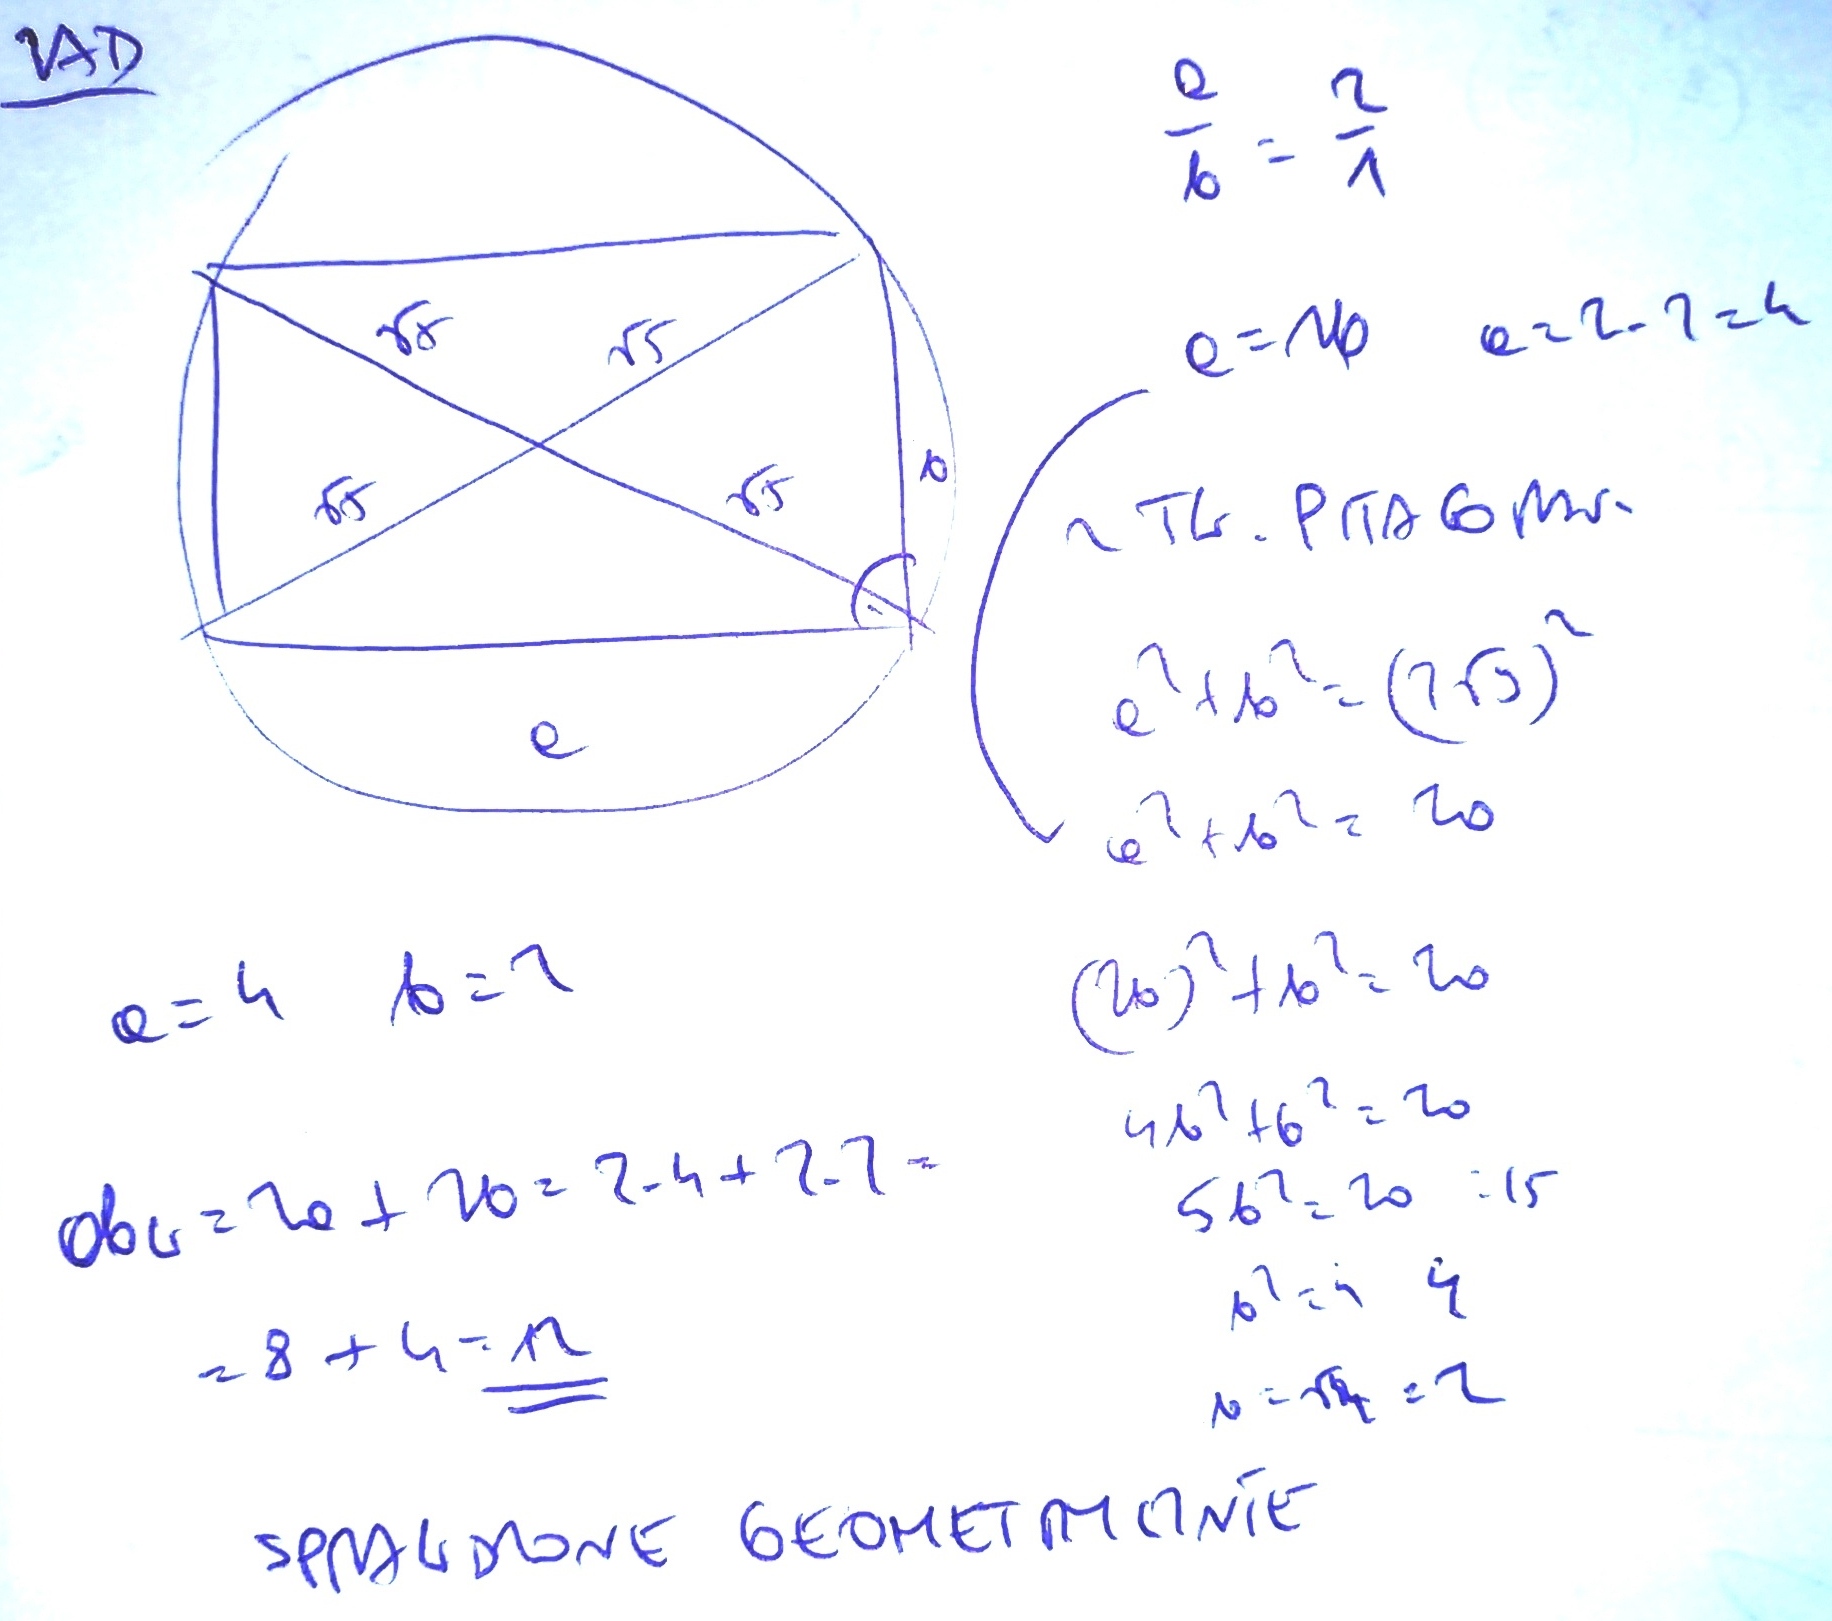 √5 √5
√5 √5
b
a
a/b = 2/1
a=2b a=2·2=4
z TW. PITAGORASA
a²+b²=(2√5)²
a²+b²=20
(2b)²+b²=20
4b²+b²=20
5b²=20 :15
b²=4 4
b=√4=2
a=4 b=2
Obw=2a+2b=2·4+2·2=
=8+4=12
SPRAWDZONE GEOMETRYCZNIE